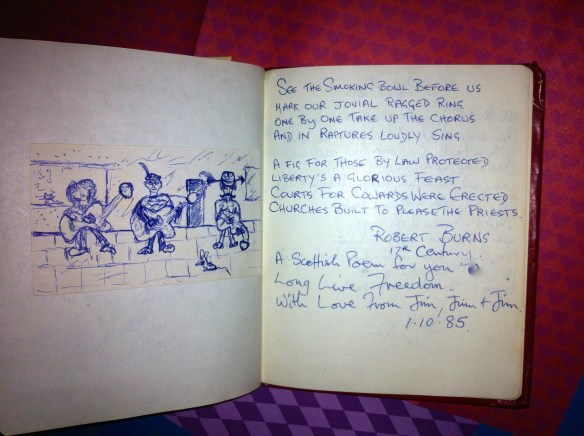 See The Smoking Bowl Before Us
Mark Our Jovial Ragged Ring
One By One Take Up The Chorus
And In Raptures Loudly Sing
A Fig For Those By Law Protected
Liberty's A Glorious Feast
Courts For Cowards Were Erected
Churches Built To Please The Priests.
Robert Burns
17th Century
A Scottish Poem for you
Long Live Freedom.
With Love From Jim, Jim + Jim.
1.10.85